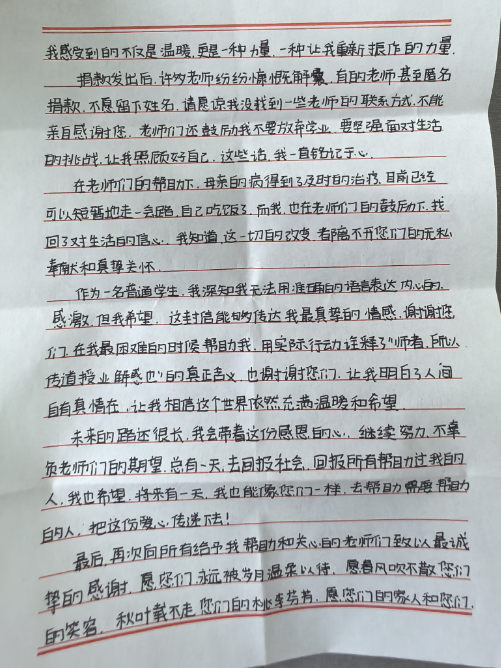 我感受到的不仅是温暖,更是一种力量,一种让我重新振作的力量.
捐款发出后,许多老师纷纷慷慨解囊,有的老师甚至匿名
捐款,不愿留下姓名,请原谅我没找到一些老师的联系方式,不能
亲自感谢您,老师们还鼓励我不要放弃学业,要坚强面对生活
的挑战,让我照顾好自己,这些话,我一直铭记于心.
在老师们的帮助下,母亲的病得到了及时的治疗,目前已经
可以短暂地走一会路,自己吃饭了,而我,也在老师们的鼓励下,找
回了对生活的信心,我知道,这一切的改变,都离不开您们的无私
奉献和真挚关怀.
作为一名普通学生,我深知我无法用准确的语言表达内心的
感激,但我希望,这封信能够传达我最真挚的情感,谢谢您
们,在我最困难的时候帮助我,用实际行动诠释了"师者,所以
传道授业解惑也"的真正含义,也谢谢您们,让我明白了人间
自有真情在,让我相信这个世界依然充满温暖和希望.
未来的路还很长,我会带着这份感恩的心,继续努力,不辜
负老师们的期望,总有一天,去回报社会,回报所有帮助过我的
人,我也希望,将来有一天,我也能像您们一样,去帮助需要帮助
的人,把这份爱心传递下去!
最后,再次向所有给予我帮助和关心的老师们致以最诚
挚的感谢,愿您们,永远被岁月温柔以待,愿春风吹不散您们
的笑容,秋叶载不走您们的桃李芬芳,愿您们的家人和您们,